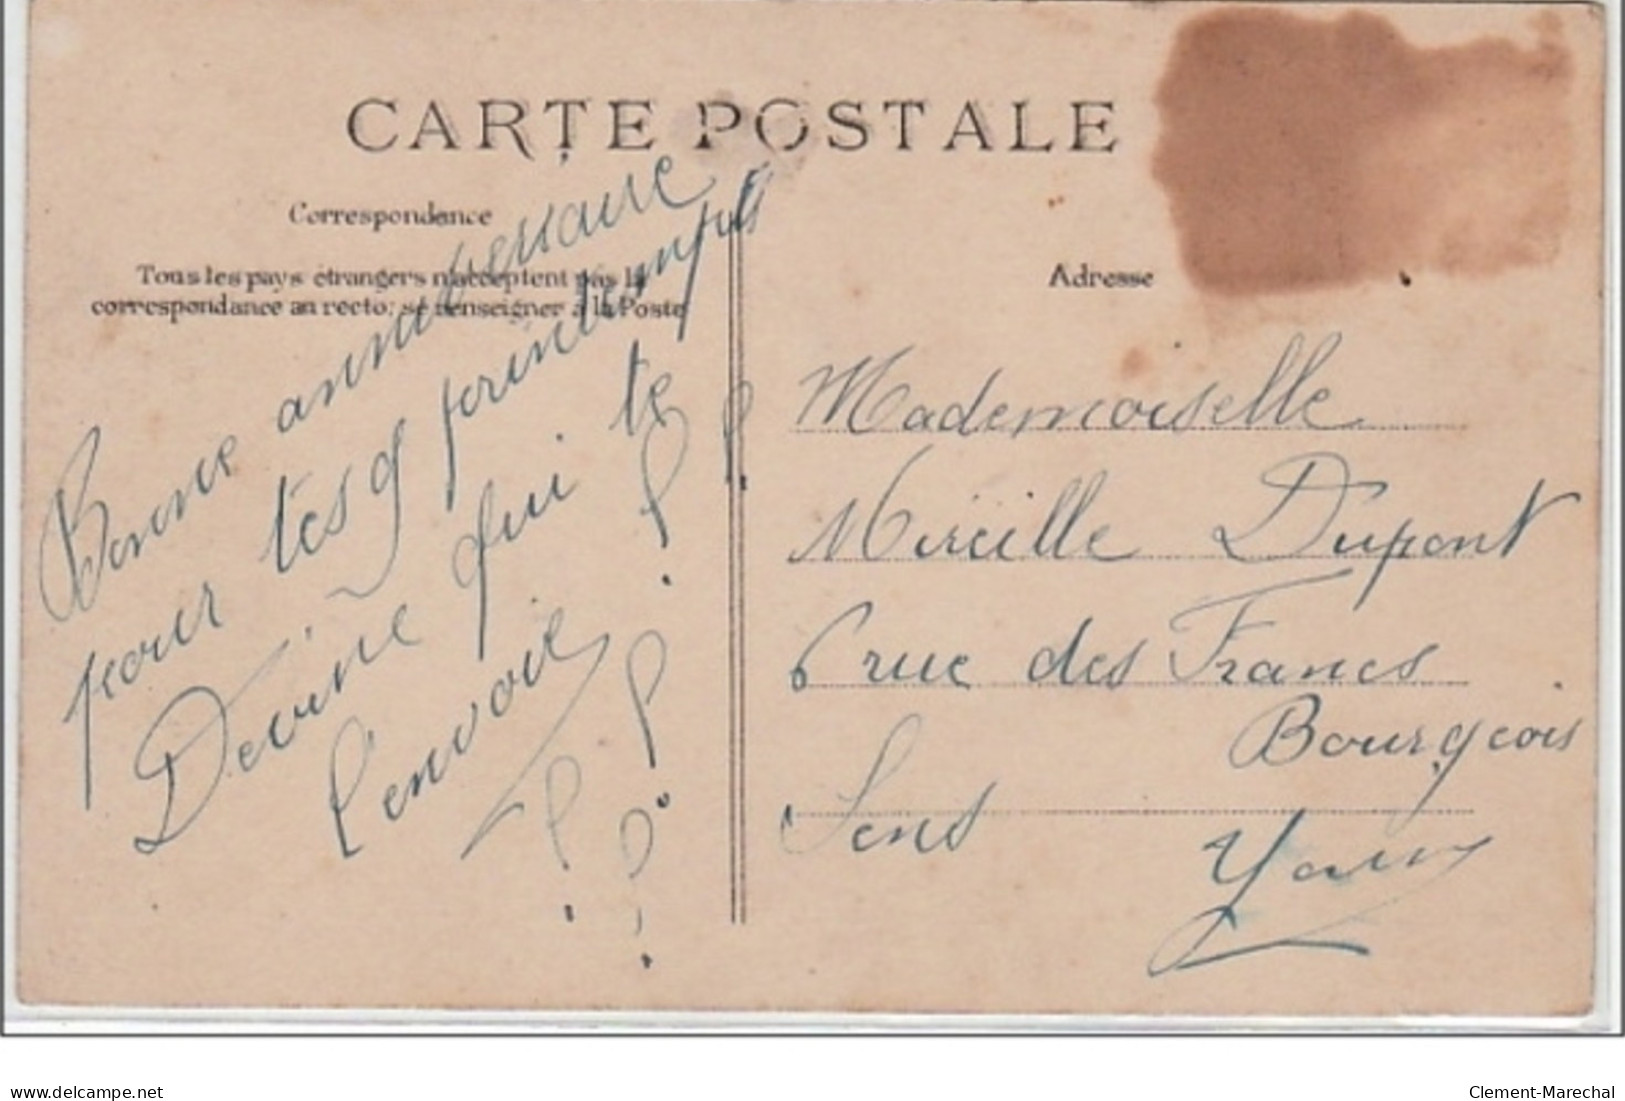 CARTE POSTALE
Correspondance
Tous les pays étrangers n'acceptent pas la
correspondance au recto: se renseigner à la Poste
Bonne anniversaire
pour tes 9 printemps
Devine qui te
l'envoie
? ? ? ? ?
Adresse
Mademoiselle
Mireille Dupont
6 rue des Francs
Bourgeois
Sens
Yonne
www.delcampe.net
Clement-Marechal